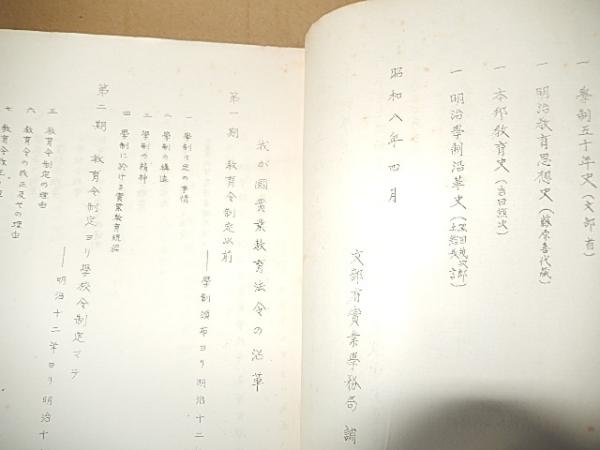 一 學制五十年史(文部省)
一 明治教育思想史(藤原喜代藏)
一 本邦教育史(吉田熊次)
一 明治學制沿革史(黒田茂次郎 土舘長言)
昭和八年四月
文部省實業學務局 調
我が國實業教育法令の沿革
第一期 教育令制定以前
──學制頒布ヨリ明治十二
一 學制制定の事情
二 學制の構造
三 學制の精神
四 學制に於ける實業教育規程
第二期 教育令制定ヨリ學校令制定マデ
──明治十二年ヨリ明治十
五 教育令制定の理由
六 教育令の改正及その理由
七 教育令改正